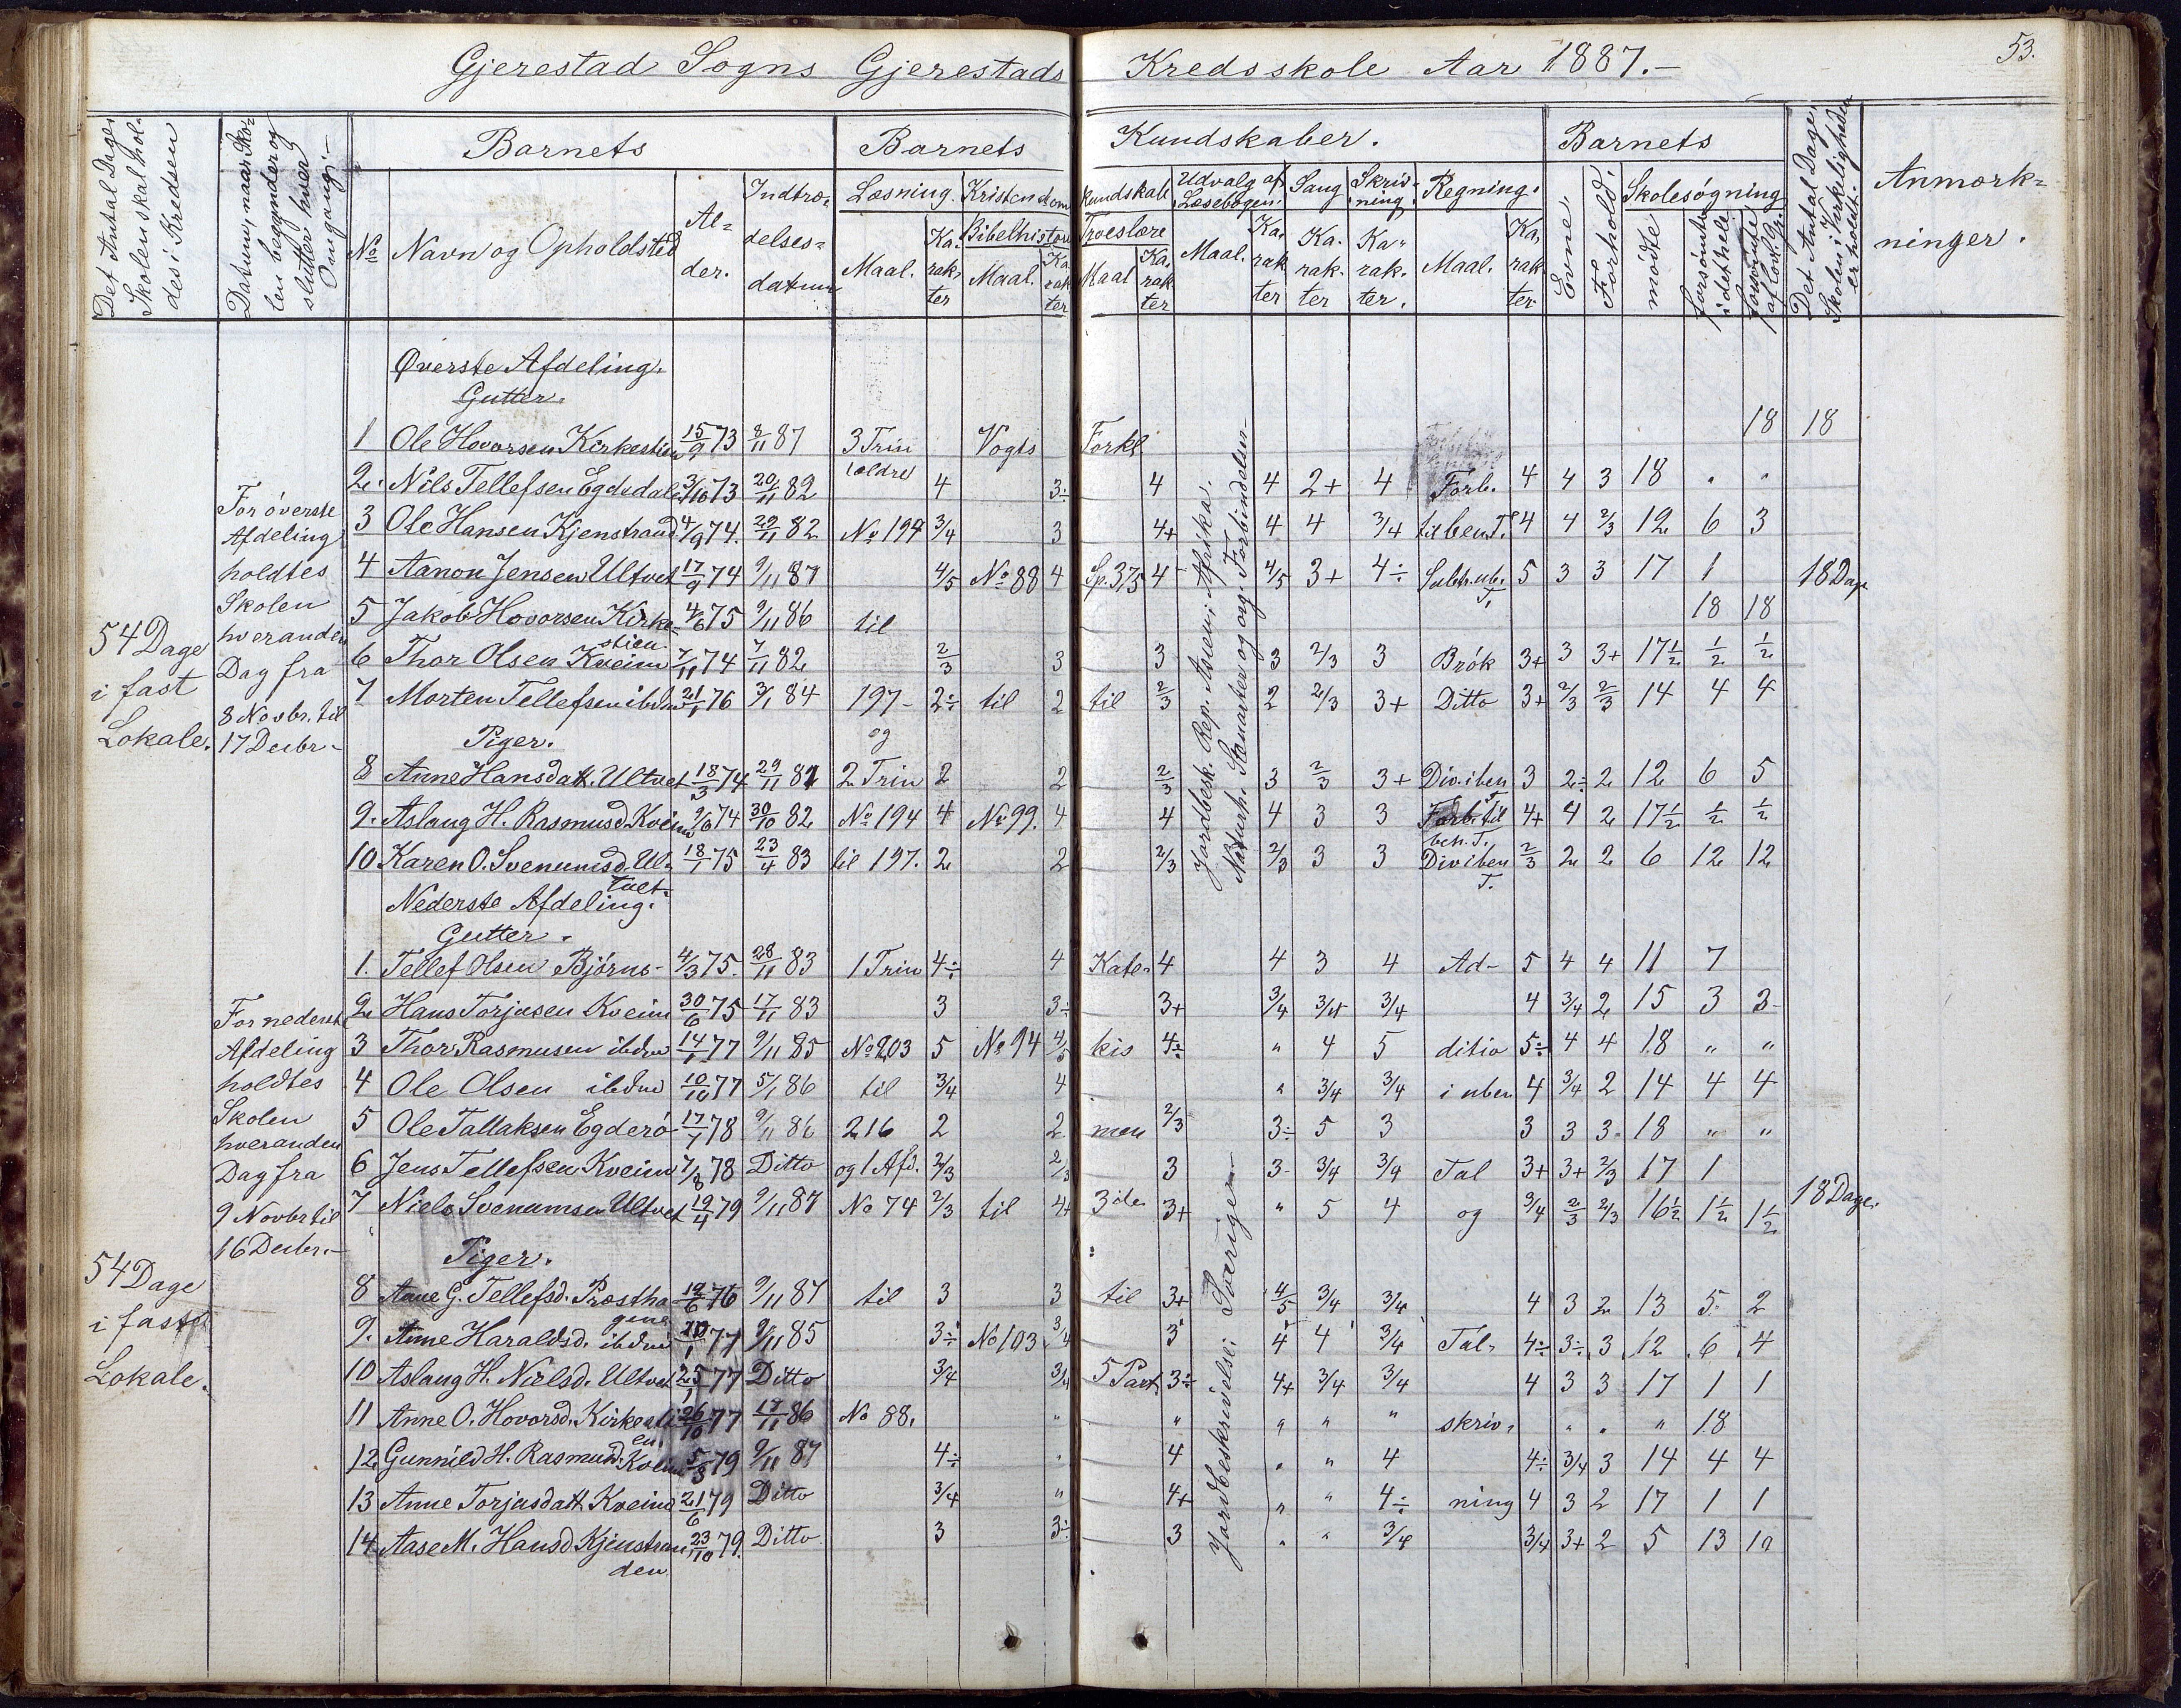 Gjerestad Sogns Gjerestads Kredsskole Aar 1887.-
53.
Det Antal Dage, Skolen skal holdes i Kredsen
Datum, naar Skolen begynder og slutter hver Omgang;-
Barnets
Barnets
Kundskaber.
Barnets
Det Antal Dage, Skolen i Virkeligheden er holdt.
Anmærkninger.
No
Navn og Opholdsted
Alder.
Indtrædelsesdatum
Læsning. Kristendoms kundskab
Udvalg af Læsebogen.
Sang
Skrivning.
Regning.
Evne.
Forhold.
Skolesøgning
Maal. Karakter
Bibelhistorie Maal. Karakter
Troeslære Maal Karakter
Maal. Karakter
Karakter
Karakter.
Maal. Karakter
mødte
forsømte i det hele
forsømte af lovl. Gr.
Øverste Afdeling.
Gutter.
1 Ole Hovorsen Kirkestien 15/9 73 8/11 87 3 Trin Vogts Forkl 18 18
2. Nils Tellefsen Egdedalen 3/10 73 20/11 82 ældre 4 3÷ 4 4 2+ 4 Forb. 4 4 3 18 " "
3 Ole Hansen Kjenstrand 4/9 74. 29/11 82 No 194 3/4 3 4+ 4 4 3/4 til ben T. 4 4 2/3 12 6 3
4 Aanon Jensen Ultvet 17/9 74 9/11 87 4/5 No 88 4 Sp. 375 4 4/5 3+ 4÷ Subtr. ub. T. 5 3 3 17 1 18 Dage
5 Jakob Hovorsen Kirkestien 4/6 75 9/11 86 til 18 18
6 Thor Olsen Kveim 7/11 74 7/11 82 2/3 3 3 3 2/3 3 Brøk 3+ 3 3+ 17 1/2 1/2 1/2
7 Morten Tellefsen ibdm 21/1 76 3/1 84 197- 2÷ til 2 til 2/3 2 2/3 3+ Ditto 3+ 2/3 2/3 14 4 4
Piger. og
8 Anne Hansdatt. Ultvet 18/3 74 29/11 81 2 Trin 2 2 2/3 3 2/3 3+ Div. i ben T. 3 2÷ 2 12 6 5
9. Aslaug H. Rasmusd. Kveim 9/6 74 30/10 82 No 194 4 No 99. 4 4 4 3 3 Forb. til ben. T. 4+ 4 2 17 1/2 1/2 1/2
10 Karen O. Svenumsd. Ultvet. 18/1 75 23/4 83 til 197. 2 2 2/3 2/3 3 3 Div i ben T. 2/3 2 2 6 12 12
For øverste
Afdeling
holdtes
Skolen
hveranden
Dag fra
8 Novbr. til
17 Decbr-
54 Dage
i fast
Lokale.
Jordbesk. Rep. Asien; Afrika.
Naturh. Stenarter og org. Forbindelser
Nederste Afdeling.
Gutter.
1. Tellef Olsen Bjørns- 4/3 75. 28/11 83 1 Trin 4÷ 4 Kate- 4 4 3 4 Ad- 5 4 4 11 7
2 Hans Torjusen Kveim 30/6 75 17/11 83 3 3÷ 3+ 3/4 3/4 3/4 4 3/4 2 15 3 3-
3 Thor Rasmusen ibdm 14/1 77 9/11 85 No 203 5 No 94 4/5 kis 4÷ " 4 5 ditio 5÷ 4 4 18 " "
4 Ole Olsen ibdm 10/10 77 5/1 86 til 3/4 4 " 3/4 3/4 i uben 4 3/4 2 14 4 4
5 Ole Tallaksen Egderø 17/1 78 9/11 86 216 2 2 men 2/3 3÷ 5 3 3 3 3. 18 " "
6 Jens Tellefsen Kveim 7/8 78 Ditto og 1 Afd. 2/3 2/3 3 3- 3/4 3/4 Tal 3+ 3+ 2/3 17 1
7 Niels Svenumsen Ultvet 19/4 79 9/11 87 No 74 2/3 til 4+ 3de 3+ " 5 4 og 3/4 2/3 2/3 16 1/2 1 1/2 1 1/2 18 Dage.
Piger.
8 Anne G. Tellefsd. Præsthagene 12/6 76 9/11 87 til 3 3 til 3+ 4/5 3/4 3/4 4 3 2 13 5. 2
9. Anne Haraldsd. ibdm 20/1 77 9/11 85 3÷ No 103 3/4 3 4 4 3/4 Tal- 4÷ 3÷ 3 12 6 4
10 Aslaug H. Nielsd. Ultvet 25/1 77 Ditto 3/4 3/4 5 Part 3÷ 4+ 3/4 3/4 4 3 3 17 1 1
11 Anne O. Hovorsd. Kirkestien. 26/10 77 17/11 86 No 88. " " " " " skriv- " " " 18
12 Gunnild H. Rasmusd. Kveim 5/3 79 9/11 87 4÷ " 4 " " 4 4÷ 3/4 3 14 4 4
13 Anne Torjusdatt Kveim 21/6 79 Ditto 3/4 " 4+ " " 4÷ ning 4 3 2 17 1 1
14 Aase M. Hansd Kjenstranden 23/10 79. Ditto 3 3÷ 3 " " 3/4 3/4 3+ 2 5 13 10
For nederste
Afdeling
holdtes
Skolen
hveranden
Dag fra
9 Novbr til
16 Decbr.-
54 Dage
i fast
Lokale.
Jordbeskrivelse: Sverige-